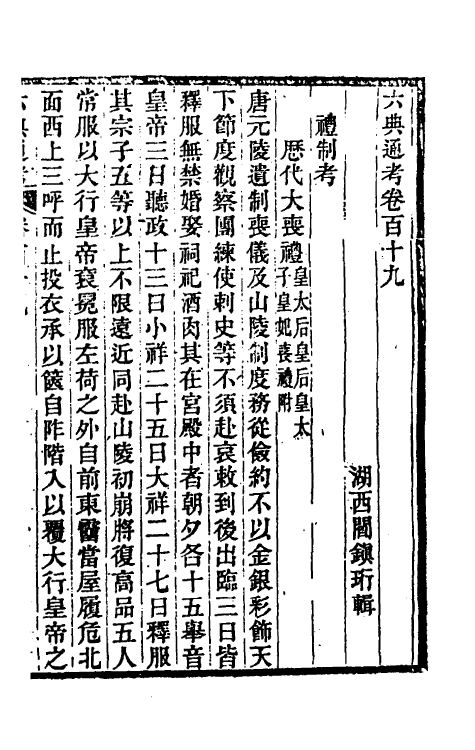 六典通考卷百十九
湖西閻鎮珩輯
禮制考
歷代大喪禮皇太后皇后皇太子皇妃喪禮附
唐元陵遺制喪儀及山陵制度務從儉約不以金銀彩飾天
下節度觀察團練使刺史等不須赴哀敕到後出臨三日皆
釋服無禁婚娶祠祀酒肉其在宮殿中者朝夕各十五舉音
皇帝三日聽政十三日小祥二十五日大祥二十七日釋服
其宗子五等以上不限遠近同赴山陵初崩將復高品五人
常服以大行皇帝袞冕服左荷之外自前東霤當屋履危北
面西上三呼而止投衣承以篋自阼階入以覆大行皇帝之